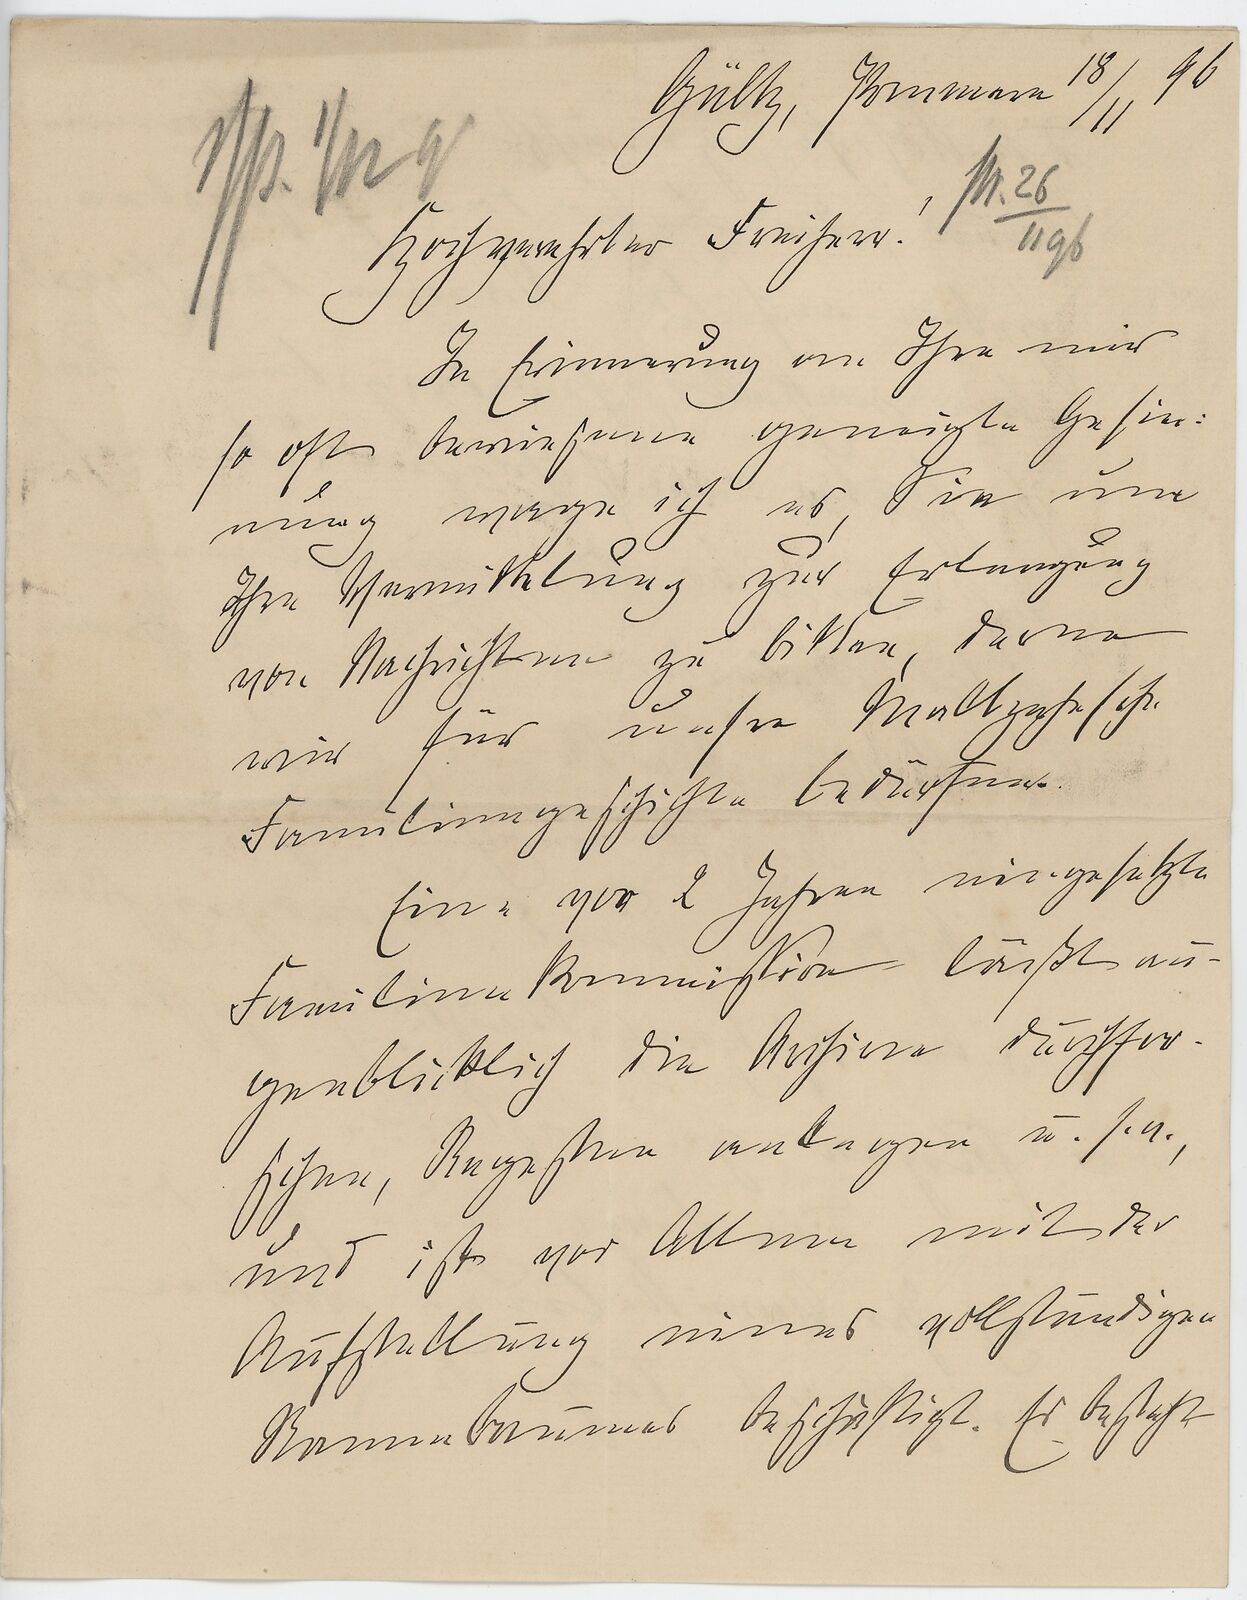 Gültz, Pommern 18/11 96
26/11 96
Hochverehrter Freiherr!
In Erinnerung an Ihre mir
so oft bewiesene geneigte Gesin:
nung wage ich es, Sie um
Ihre Vermittelung zur Erlangung
von Nachrichten zu bitten, deren
wir für unsre Maltzahnsche
Familiengeschichte bedürfen.
Eine vor 2 Jahren eingesetzte
Familienkommission läßt au-
genblicklich die Archive durchfor-
schen, Regesten anlegen u. s. w.,
und ist vor Allem mit der
Aufstellung eines vollständigen
Stammbaumes beschäftigt. Es besteht